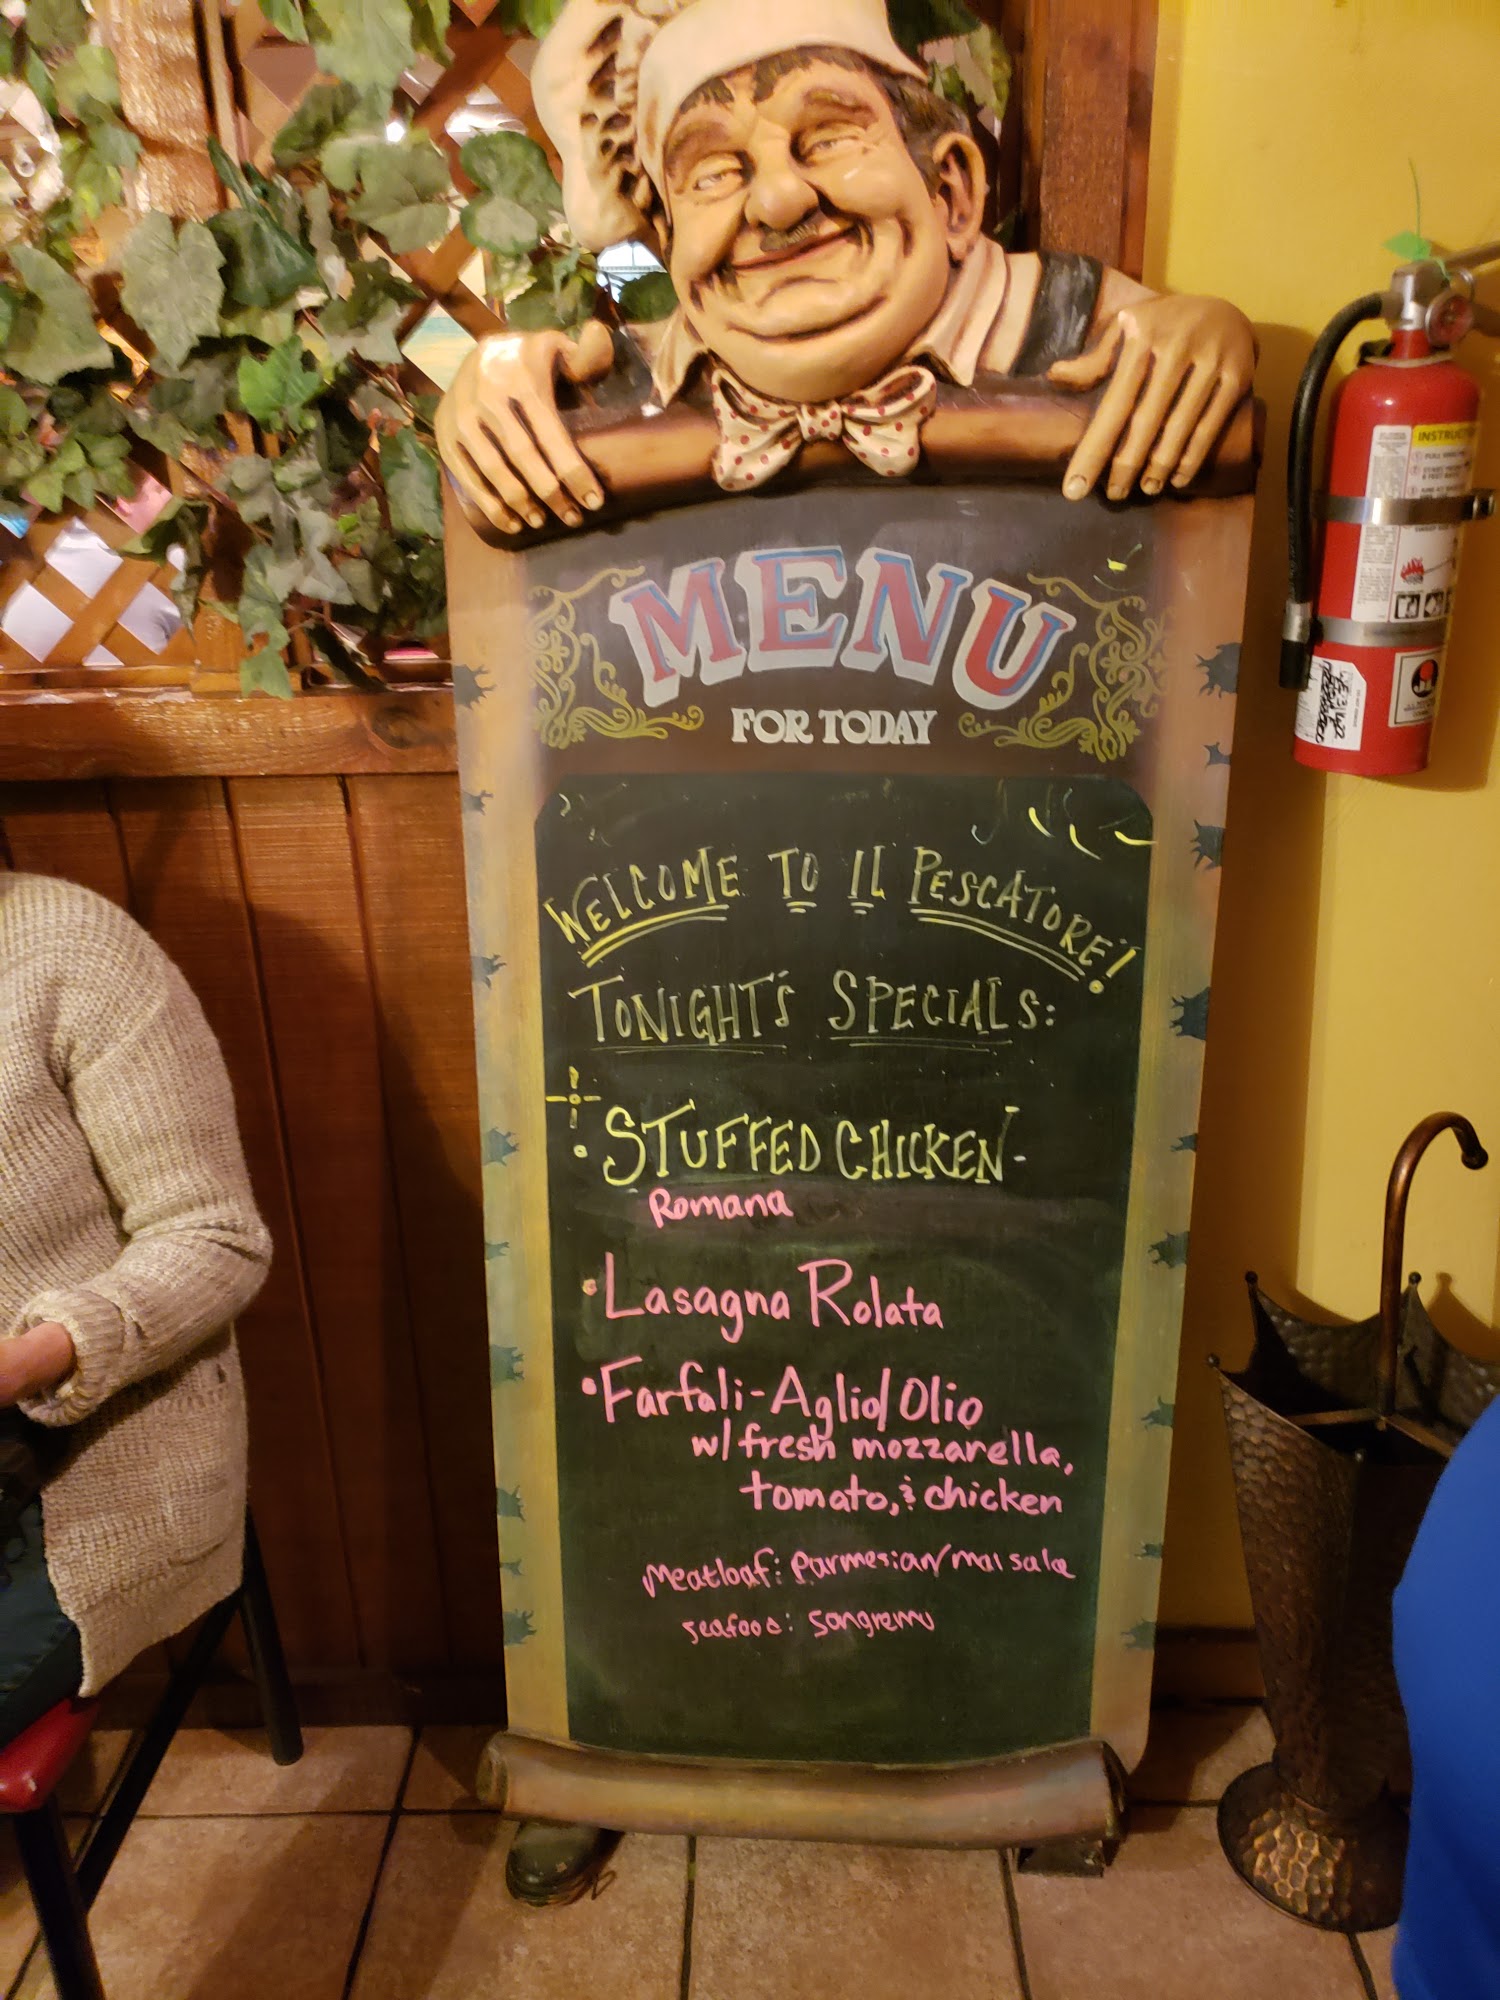 MENU
FOR TODAY
WELCOME TO IL PESCATORE!
TONIGHT'S SPECIALS:
• STUFFED CHICKEN-
Romana
• Lasagna Rolata
• Farfali-Aglio/Olio
w/ fresh mozzarella,
tomato, & chicken
Meatloaf: parmesian/marsala
seafood:
INSTRUCT